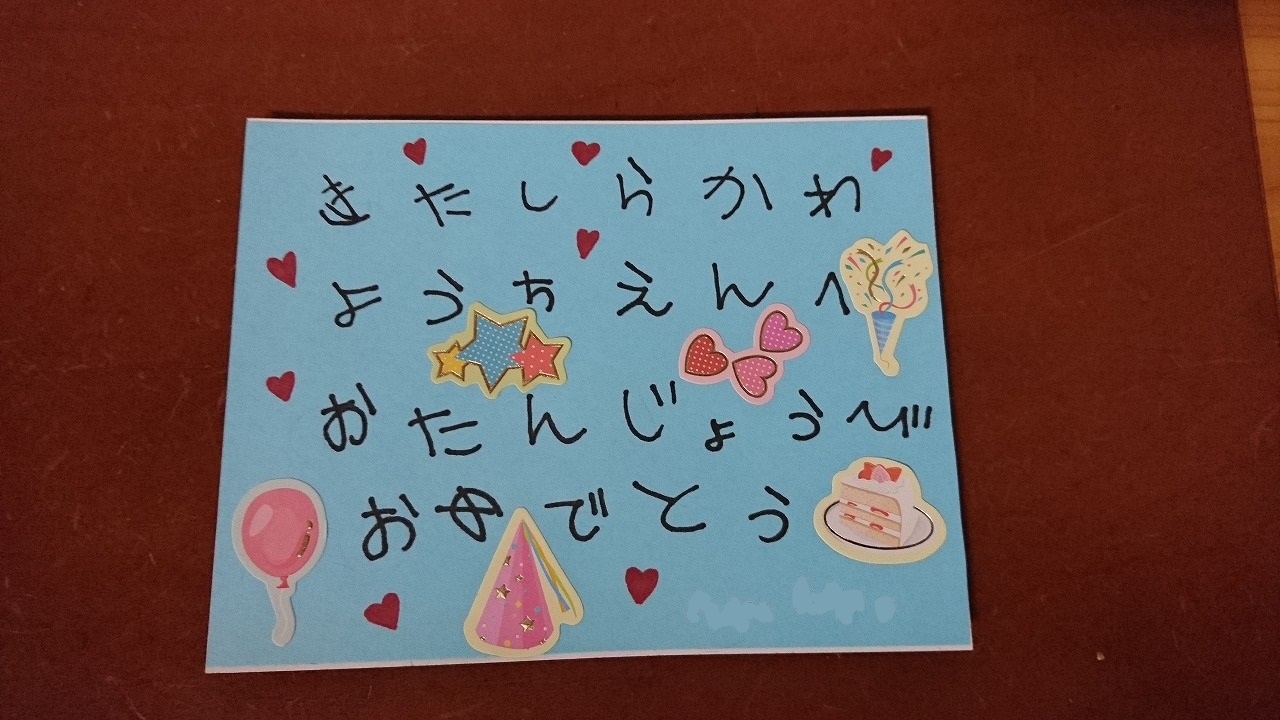 きたしらかわ
ようちえんへ
おたんじょうび
おめでとう